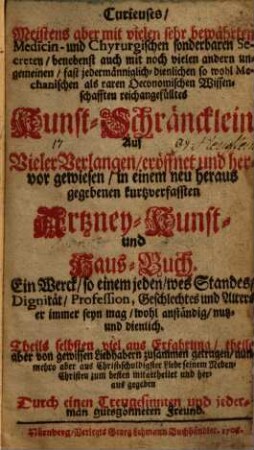 Curieuses/
Meistens aber mit vielen sehr bewährten
Medicin- und Chyrurgischen sonderbaren Se-
creten / benebenst auch mit noch vielen andern un-
gemeinen / fast jedermänniglich-dienlichen so wohl Me-
chanischen als raren Oeconomischen Wissen-
schafften reichangefülltes
Kunst-Schräncklein
Auf
Vieler Verlangen / eröffnet und her-
vor gewiesen / in einem neu heraus
gegebenen kurtzverfassten
Artzney-Kunst-
und
Haus-Buch.
Ein Werck / so einem jeden / wes Standes /
Dignität / Profession, Geschlechtes und Alters
er immer seyn mag / wohl anständig / nutz-
und dienlich.
Theils selbsten viel aus Erfahrung / theils
aber von gewissen Liebhabern zusammen getragen / nun-
mehro aber aus Christschuldigster Liebe seinem Neben-
Christen zum besten mitgetheilet und her-
aus gegeben
Durch einen Treugesinnten und jeder-
man gutsgönneten Freund.
Nürnberg / Verlegts Georg Lehmann Buchhändler. 1706.